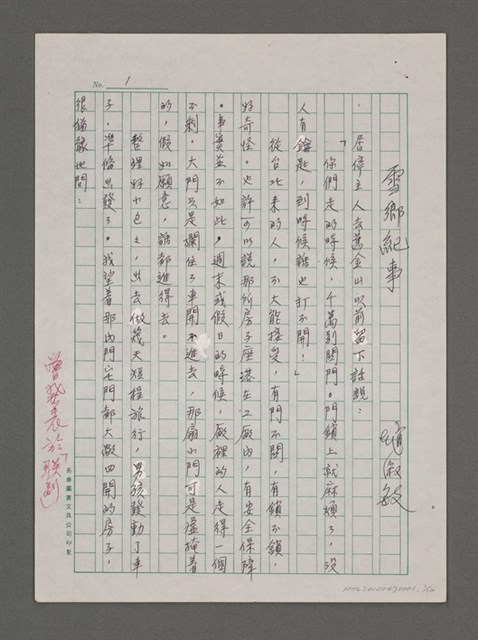 No. 1
雪鄉紀事
喻淑敏
居停主人去舊金山以前留下話說：
「你們走的時候，千萬別關門。門鎖上就麻煩了，沒
人有鑰匙，到時候誰也打不開！」
從台北來的人，不大能接受，有門不關，有鎖不鎖，
好奇怪。也許可以說那所房子座落在工廠內，有安全保障
。事實並不如此。週末或假日的時候，廠裡的人走得一個
不剩，大門只是攔住了車開不進去，那扇小門可是虛掩着
的，假如願意，誰都進得去。
整理好小包包，出去做幾天短程旅行，男孩發動了車
子，準備出發了。我望着那內門宅門都大敞四開的房子，
很猶豫地問：
曾發表於「联副」
長車圖書文具公司印製